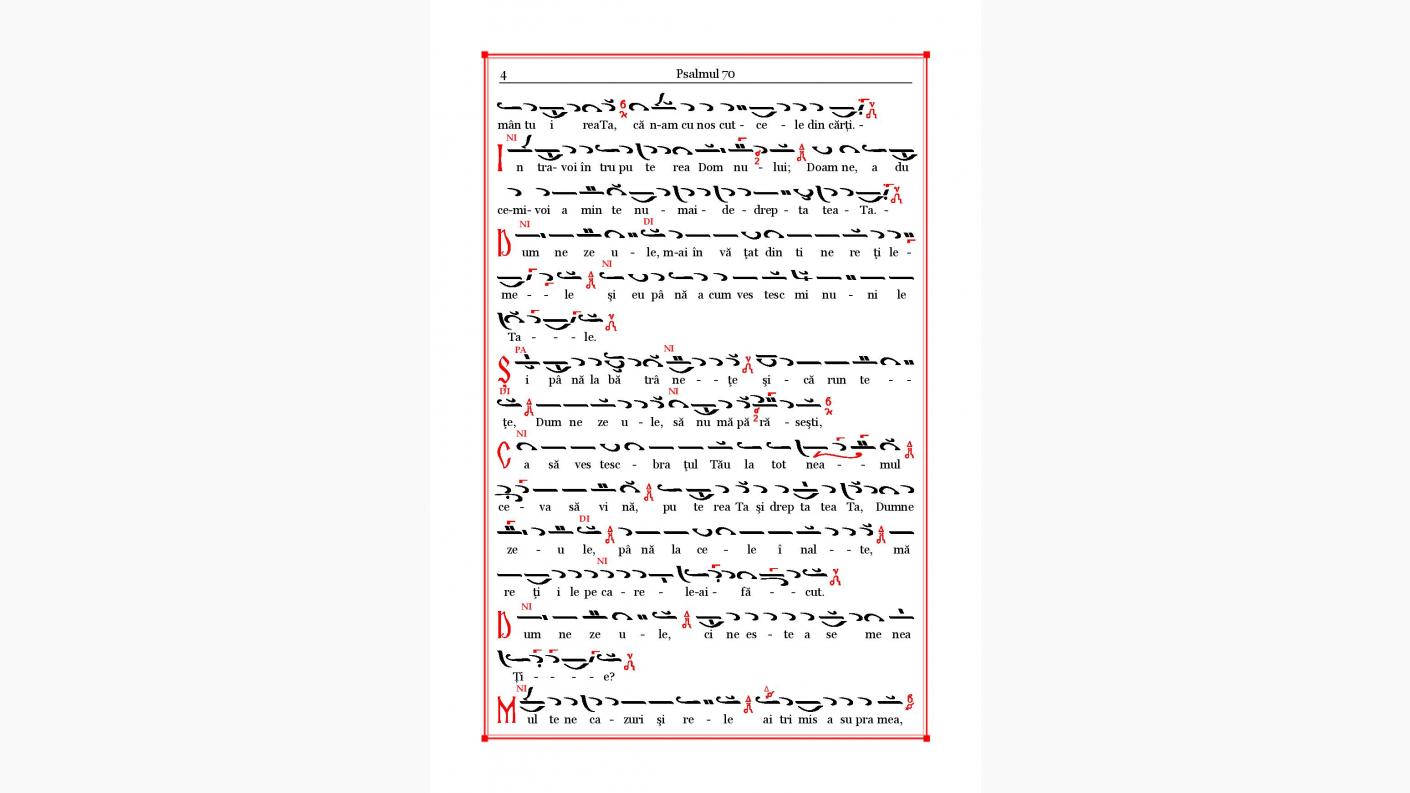 4 Psalmul 70
mân tu i reaTa, că n-am cu nos cut - ce - le din cărţi. -
NI
In tra- voi în tru pu te rea Dom nu - lui; Doam ne, a du
ce-mi- voi a min te nu - mai - de - drep - ta tea - Ta. -
NI DI
Dum ne ze u - le, m-ai în vă ţat din ti ne re ţi le -
NI
me - - le şi eu pâ nă a cum ves tesc mi nu - ni le
Ta - - - le.
PA NI
Şi pâ nă la bă trâ ne - - ţe şi - că run te - -
DI NI
ţe, Dum ne ze u - le, să nu mă pă ră - seşti,
NI
Ca să ves tesc - bra ţul Tău la tot nea - - mul
ce - va să vi nă, pu te rea Ta şi drep ta tea Ta, Dumne
DI
ze - u le, pâ nă la ce - le î nal - - te, mă
NI
re ţi i le pe ca - re - le-ai - fă - - cut.
NI
Dum ne ze u - le, ci ne es - te a se me nea
Ţi - - - - e?
NI
Mul te ne ca - zuri şi re - le ai tri mis a su pra mea,